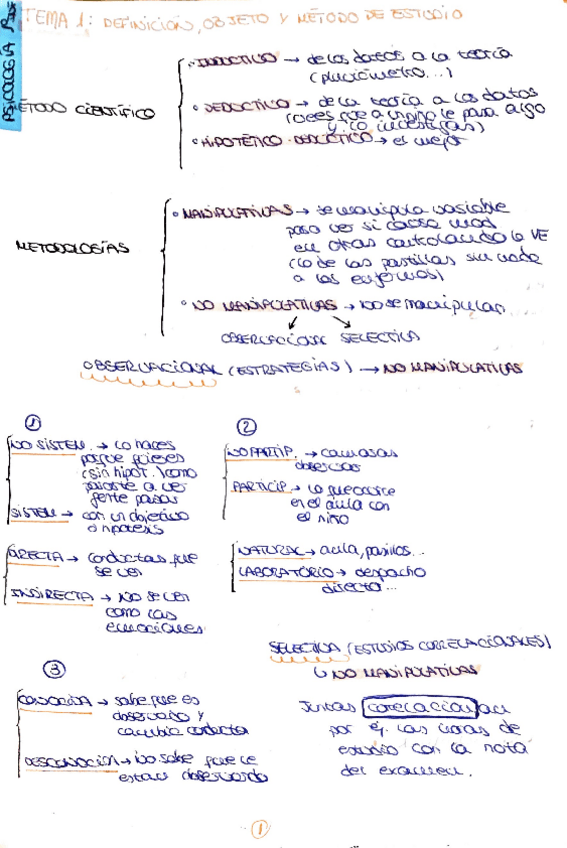 TEMA 1: DEFINICIÓN, OBJETO Y MÉTODO DE ESTUDIO
PSICOLOGÍA
MÉTODO CIENTÍFICO
INDUCTIVO → de los datos a la teoría
(pluviómetro...)
DEDUCTIVO → de la teoría a los datos
(crees que a un niño le pasa algo
y lo investigas)
HIPOTÉTICO-DEDUCTIVO → el mejor
METODOLOGÍAS
MANIPULATIVAS → se manipula variable
para ver si causa mod
en otras controlando la VE
(lo de las pastillas sin nada
a los enfermos)
NO MANIPULATIVAS → no se manipulan
OBSERVACIONAL SELECTIVA
OBSERVACIONAL (ESTRATEGIAS) → NO MANIPULATIVAS
①
NO SISTEM. → lo haces
porque quieres
(sin hipót.) como
ponerte a ver
gente pasar
SISTEM → con un objetivo
o hipótesis
DIRECTA → conductas que
se ven
INDIRECTA → NO se ven
como las
emociones
②
NO PARTIP. → cámaras
observas
PARTICIP → lo que ocurre
en el aula con
el niño
NATURAL → aula, pasillos...
LABORATORIO → despacho
director...
③
CONOCIDA → sabe que es
observado y
cambia conducta
DESCONOCIDA → no sabe que le
están observando
SELECTIVA (ESTUDIOS CORRELACIONALES)
↳ NO MANIPULATIVAS
Juntas correlacionan
por ej. las horas de
estudio con la nota
del examen.
①